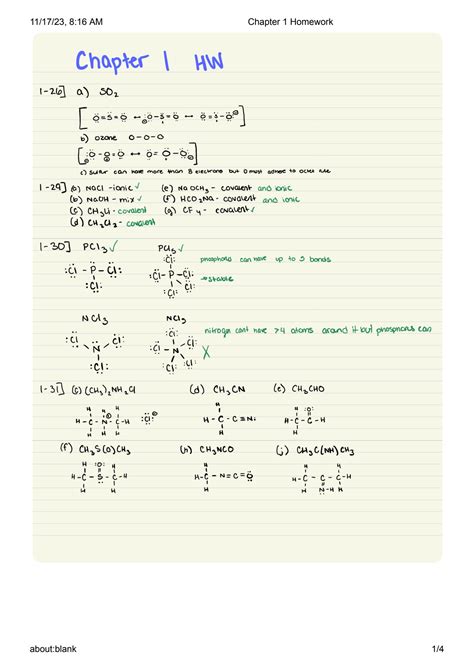 11/17/23, 8:16 AM Chapter 1 Homework
Chapter 1 HW
1-26] a) SO2
[ O=S=O ↔ O-S=O ↔ O=S-O ]
b) ozone O-O-O
[ O-O=O ↔ O=O-O ]
c) Sulfur can have more than 8 electrons but O must adhere to octet rule
1-29] (a) NaCl -ionic ✓ (e) NaOCH3 - covalent and ionic
(b) NaOH - mix ✓ (f) HCO2Na - covalent and ionic
(c) CH3Li - covalent (g) CF4 - covalent ✓
(d) CH2Cl2 - covalent
1-30] PCl3 ✓ PCl5 ✓
:Cl: phosphorus can have up to 5 bonds
:Cl - P - Cl: :Cl - P - Cl: → stable
:Cl: Cl Cl:
NCl3 NCl5
:Cl: nitrogen cant have >4 atoms around it but phosphorus can
:Cl N Cl: :Cl - N Cl: X
:Cl: :Cl Cl:
1-31] (c) (CH3)2NH2Cl (d) CH3CN (e) CH3CHO
H H H H H :O:
H-C-N-C-H :Cl: H-C-C≡N: H-C-C-H
H H H H H
(f) CH3S(O)CH3 (h) CH3NCO (j) CH3C(NH)CH3
H :O: H H H H
H-C-S-C-H H-C-N=C=O H-C-C-C-H
H H H H N-H H
about:blank 1/4